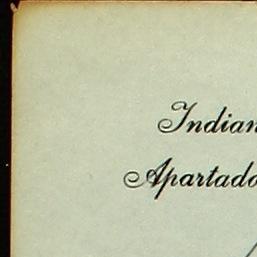 Indian
Apartado